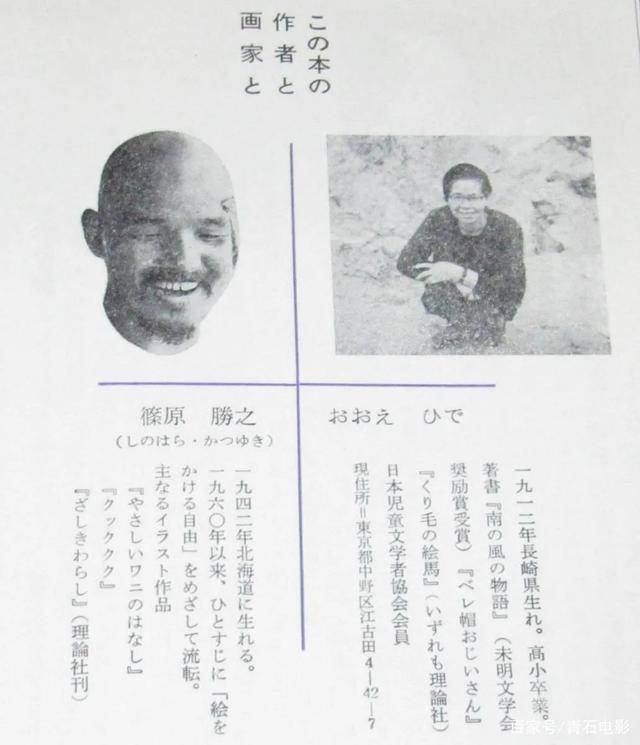 この本の
作者と
画家と
おおえ　ひで
一九一二年長崎県生れ。高小卒業。
著書『南の風の物語』（未明文学会
奨励賞受賞）『ベレ帽おじいさん』
『くり毛の絵馬』（いずれも理論社）
日本児童文学者協会会員
現住所＝東京都中野区江古田4—42—7
篠原　勝之
（しのはら・かつゆき）
一九四二年北海道に生れる。
一九六〇年以来、ひとすじに「絵を
かける自由」をめざして流転。
主なるイラスト作品
『やさしいワニのはなし』
『クックククク』
『ざしきわらし』（理論社刊）
百家号/青石电影